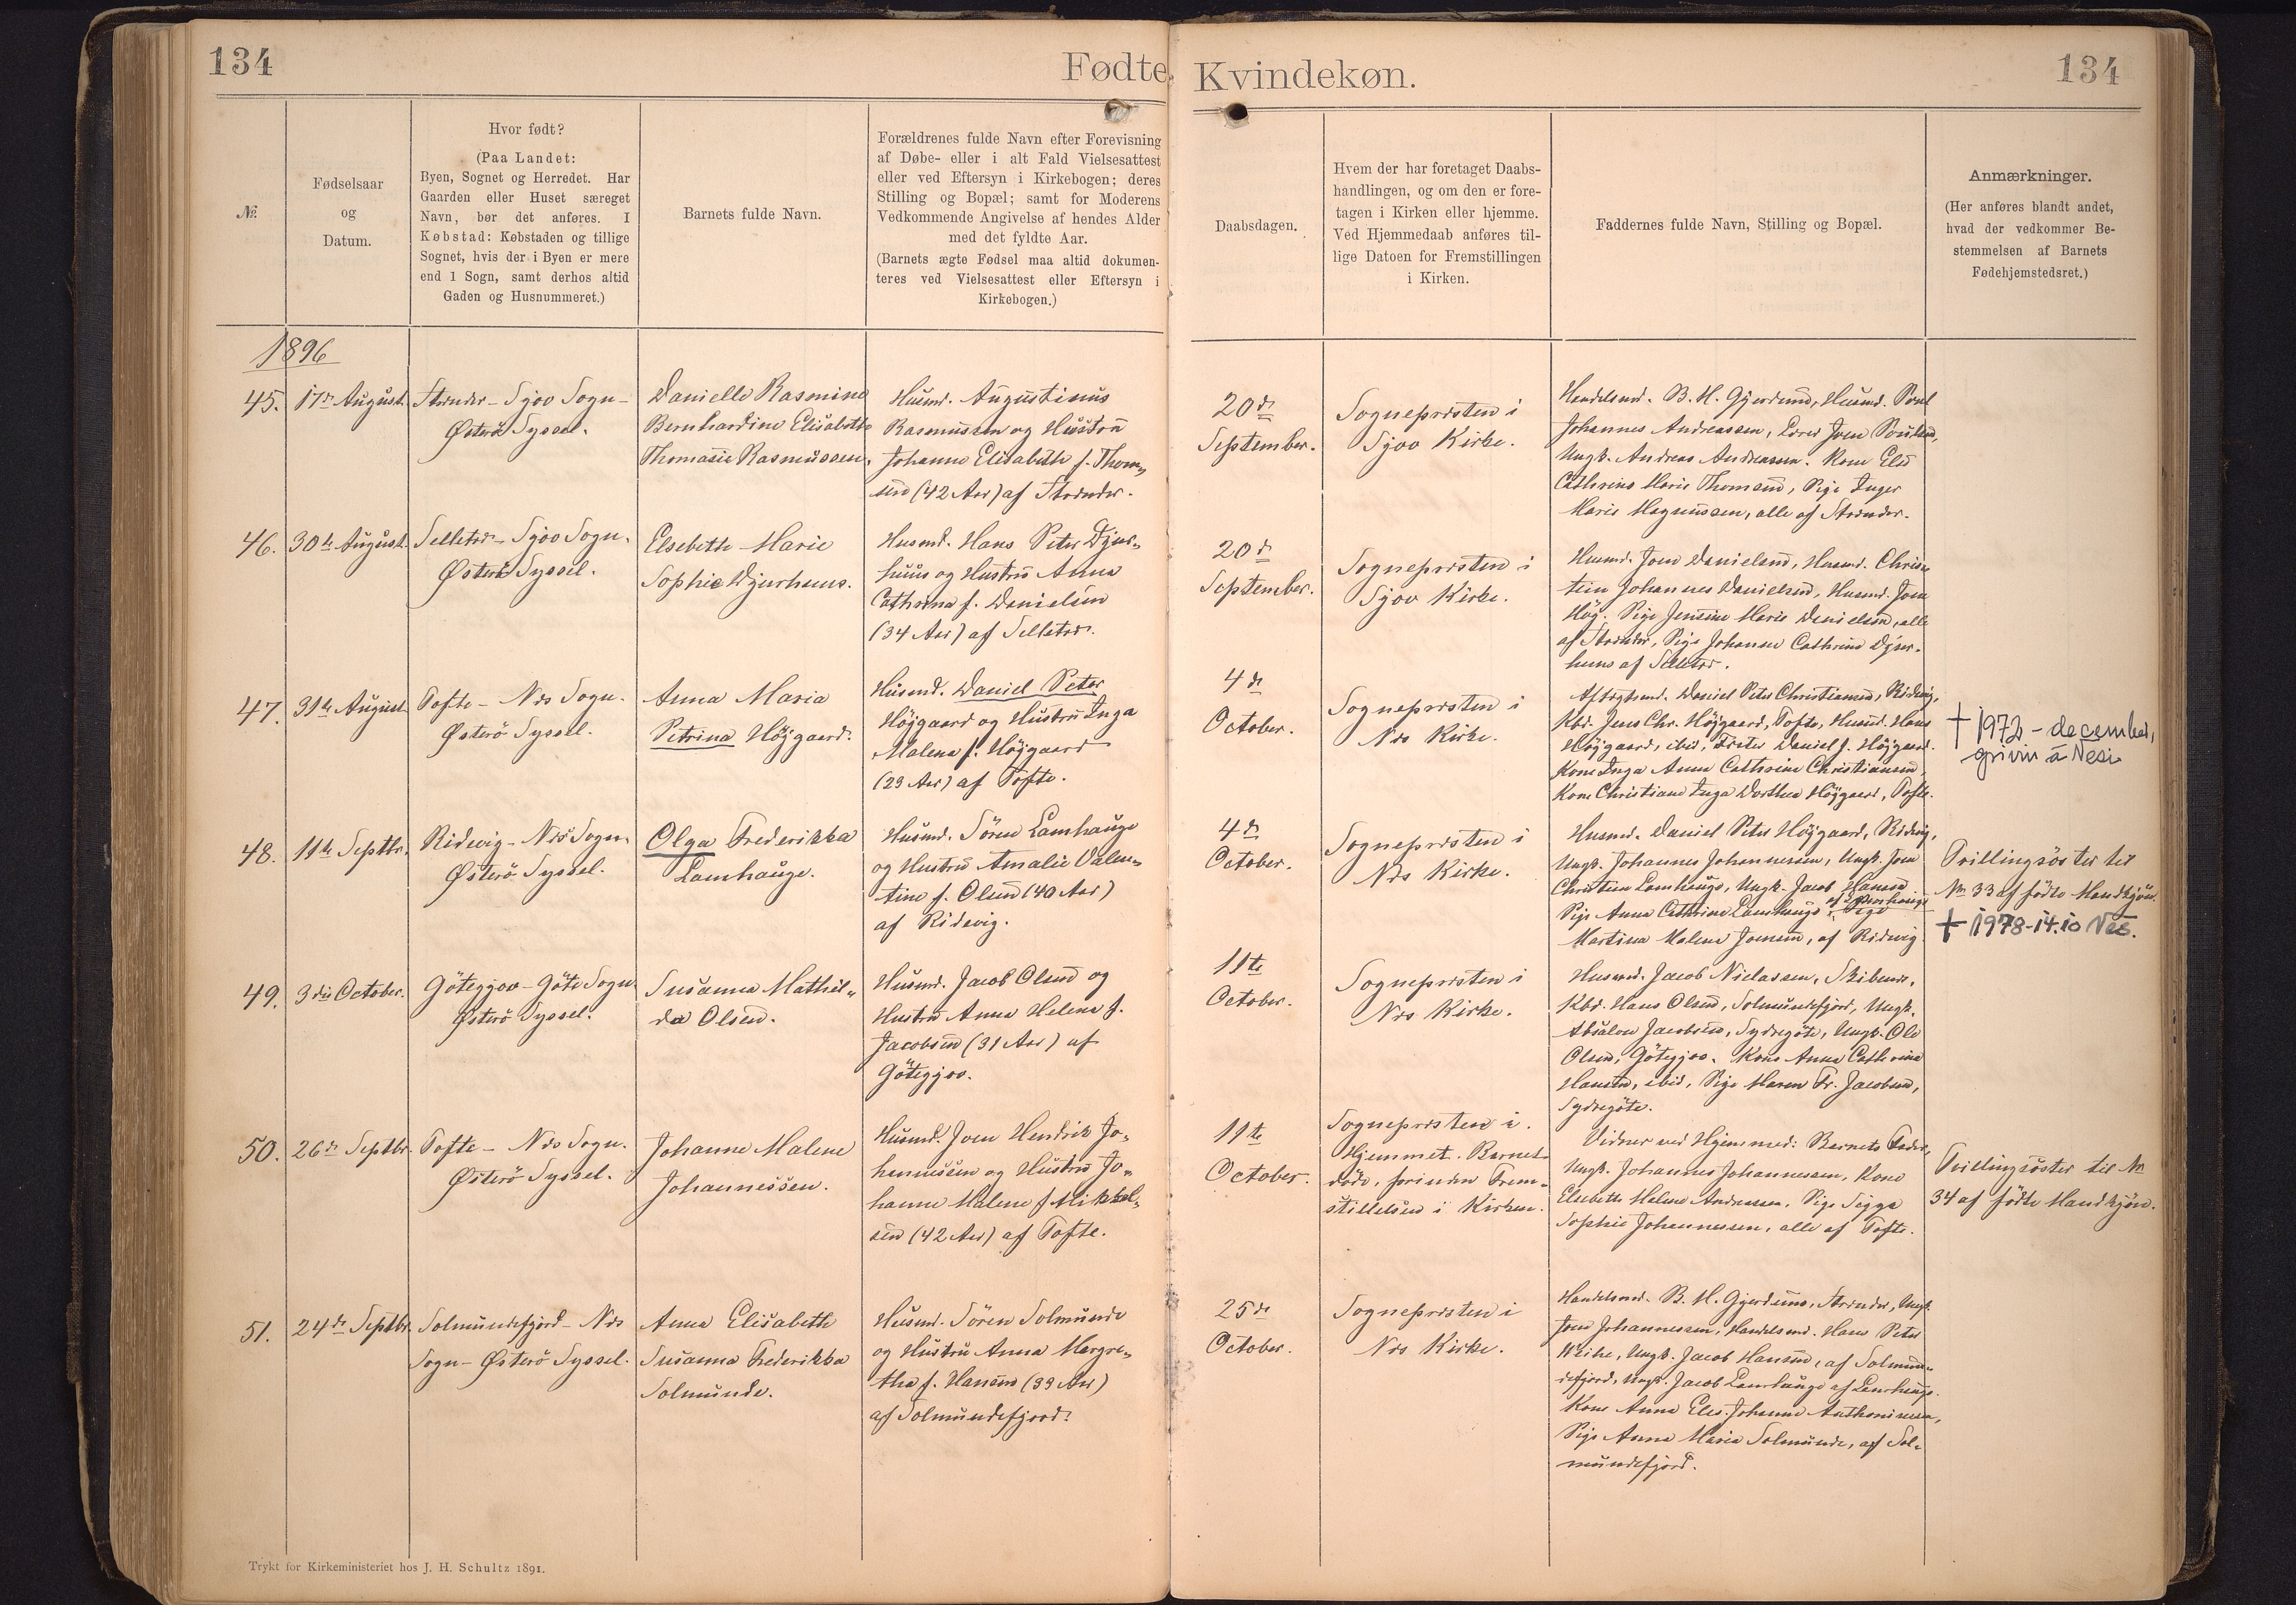 134
Fødte
Kvindekøn.
134
№
Fødselsaar
og
Datum.
Hvor født?
(Paa Landet:
Byen, Sognet og Herredet. Har
Gaarden eller Huset særeget
Navn, bør det anføres. I
Købstad: Købstaden og tillige
Sognet, hvis der i Byen er mere
end 1 Sogn, samt derhos altid
Gaden og Husnummeret.)
Barnets fulde Navn.
Forældrenes fulde Navn efter Forevisning
af Døbe- eller i alt Fald Vielsesattest
eller ved Eftersyn i Kirkebogen; deres
Stilling og Bopæl; samt for Moderens
Vedkommende Angivelse af hendes Alder
med det fyldte Aar.
(Barnets ægte Fødsel maa altid dokumen-
teres ved Vielsesattest eller Eftersyn i
Kirkebogen.)
Daabsdagen.
Hvem der har foretaget Daabs-
handlingen, og om den er fore-
tagen i Kirken eller hjemme.
Ved Hjemmedaab anføres til-
lige Datoen for Fremstillingen
i Kirken.
Faddernes fulde Navn, Stilling og Bopæl.
Anmærkninger.
(Her anføres blandt andet,
hvad der vedkommer Be-
stemmelsen af Barnets
Fødehjemstedsret.)
1896
45.
17de August.
Strænder - Sjov Sogn -
Østerö Syssel.
Danielle Rasmine
Bernhardine Elisabeth
Thomasie Rasmussen.
Husmd. Augustinus
Rasmussen og Hustru
Johanne Elisabeth f. Thom-
sen (42 Aar) af Strænder.
20de
September.
Sognepræsten i
Sjov Kirke.
Handelsmd. B. H. Gjerdum, Husmd. Poul
Johannes Andreassen, Lærer Joen Poulsen,
Ungk. Andreas Andreassen. Kone Else
Cathrine Marie Thomsen, Pige Inger
Marie Magnussen, alle af Strænder.
46.
30te August.
Selletræ - Sjov Sogn.
Østerö Syssel.
Elsebeth Marie
Sophie Djurhuus.
Husmd. Hans Peter Djur-
huus og Hustru Anna
Cathrina f. Danielsen
(34 Aar) af Selletræ.
20de
September.
Sognepræsten i
Sjov Kirke.
Husmd. Joen Danielsen, Husmd. Chris-
tein Johannes Danielsen, Husmd. Joen
Høg. Pige Jensine Marie Danielsen, alle
af Strænder, Pige Johanne Cathrine Djur-
huus af Selletræ.
47.
31te August
Tofte - Næs Sogn.
Østerö Syssel.
Anna Maria
Petrina Höjgaard.
Husmd. Daniel Peter
Höjgaard og Hustru Inga
Malena f. Höjgaard
(23 Aar) af Tofte.
4de
October.
Sognepræsten i
Næs Kirke.
Aftægtsmd. Daniel Peter Christiansen, Ridevig,
Kbd. Jens Chr. Höjgaard, Tofte, Husmd. Hans
Höjgaard, ibid, Daniel J. Höjgaard.
Kone Inga Anna Cathrine Christiansen,
Kone Christiane Inga Dorthea Höjgaard, Tofte.
† 1972 - december,
grivin á Nesi
48.
11te Septbr.
Ridevig - Næs Sogn.
Østerö Syssel.
Olga Frederikka
Lamhauge.
Husmd. Sören Lamhauge
og Hustru Amalie Valen-
tine f. Olsen (40 Aar)
af Ridevig.
4de
October.
Sognepræsten i
Næs Kirke.
Husmd. Daniel Peter Höjgaard, Ridevig,
Ungk. Johannes Johannesen, Ungk. Joen
Christian Lamhauge, Ungk. Jacob Hansen
Pige Anna Cathrine Lamhauge af Lamhauge, Pige
Martina Malene Joensen, af Ridevig.
Tvillingsöster til
No 33 af fødte Mandkjön.
† 1978-14.10 Nes.
49.
3die October.
Götegjov - Göte Sogn.
Østerö Syssel.
Susanna Mathil-
da Olsen.
Husmd. Jacob Olsen og
Hustru Anna Helene f.
Jacobsen (31 Aar) af
Götegjov.
11te
October.
Sognepræsten i
Næs Kirke.
Husmd. Jacob Nielassen, Skibene,
Kbd. Hans Olsen, Solmundefjord, Ungk.
Absalon Jacobsen, Sydregöte, Ungk. Ole
Olsen, Götegjov. Kone Anna Cathrina
Hansen, ibid, Pige Maren Fr. Jacobsen,
Sydregöte.
50.
26de Septbr.
Tofte - Næs Sogn.
Østerö Syssel.
Johanne Malene
Johannessen.
Husmd. Joen Hendrik Jo-
hannessen og Hustru Jo-
hanne Malene f. Mikkel-
sen (42 Aar) af Tofte.
11te
October.
Sognepræsten i
Hjemmet. Barnet
döde, forinden Frem-
stillelsen i Kirken.
Vidner ved Hjemmed: Barnets Fader,
Ungk. Johannes Johannessen, Kone
Elsebeth Helene Andreasen, Pige Sigga
Sophie Johannessen, alle af Tofte.
Tvillingsöster til No
34 af födte Mandkjön.
51.
24de Septbr.
Solmundefjord - Næs
Sogn - Østerö Syssel.
Anna Elisabeth
Susanna Frederikka
Solmunde.
Husmd. Sören Solmunde
og Hustru Anna Margre-
tha f. Hansen (39 Aar)
af Solmundefjord.
25de
October.
Sognepræsten i
Næs Kirke.
Handelsmd. B. H. Gjerdum, Strænder, Ungk.
Joen Johannessen, Handelsmd. Hans Peter
Weihe, Ungk. Jacob Hansen, af Solmun-
defjord, Ungk. Jacob Lamhauge af Lamhauge.
Kone Anna Elis. Johanne Anthonisen,
Pige Anna Maria Solmunde, af Sol-
mundefjord.
Trykt for Kirkeministeriet hos J. H. Schultz 1891.